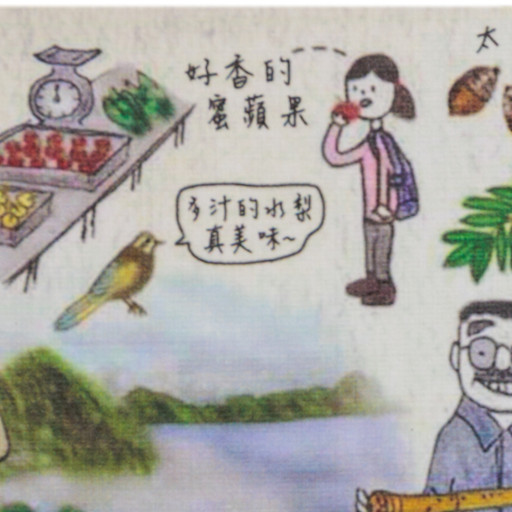 好香的
蜜蘋果
多汁的水梨
真美味~
太